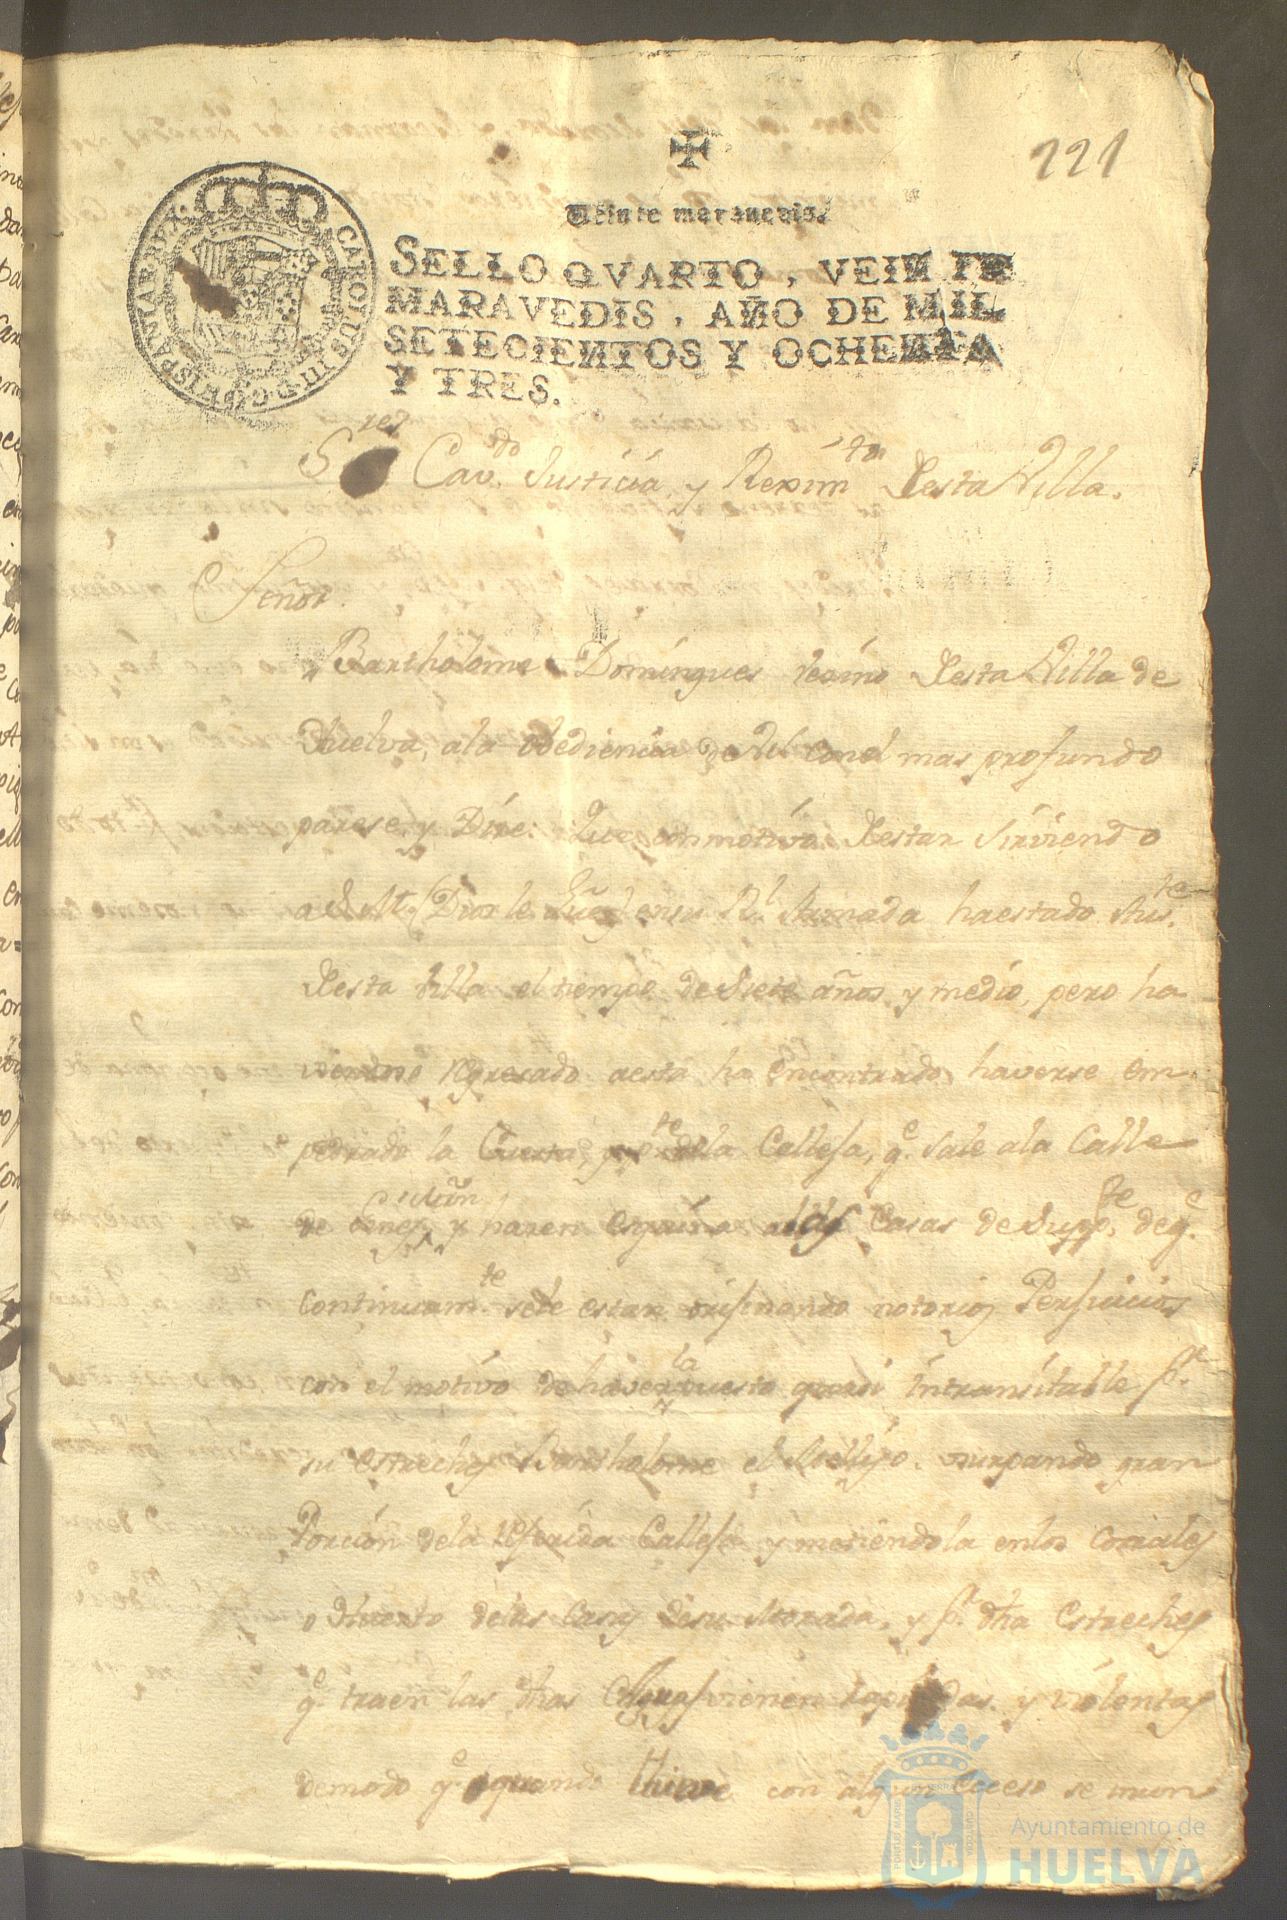 121
Veinte marauedis.
SELLO QVARTO, VEINTE
MARAVEDIS, AÑO DE MIL
SETECIENTOS Y OCHENTA
Y TRES.
CAROLUS III D. G. HISPANIAR. REX.
S.res Cav.do Justicia, y Rexim.to Desta Villa.
Señor.
Bartholome Domingues vezino Desta Villa de
Huelva, ala obediencia de con el mas profundo
parese, y Dize: Que con motivo Destar Sirviendo
a S. M. (Dios le Gu.e) en su R.l Armada ha estado Aus.te
Desta Villa el tiempo de Siete años y medio, pero ha
viendose regresado aesta ha encontrado haverse em
pedrado la Cuesta, p.te dela Callesa, q.e Sale ala Calle
de y casas de Supp.te de q.e
continuam.te sele estan orijinando notorios Perjuicios
con el motivo de haverla puesto quasi intransitable p.r
su estreches Bartholome el usurpando gran
Porción dela referida Callesa y metiendola enlos Corrales
o Huerto delas Casas Desu Morada, y p.r dha Estreches
q.e traen las dhas Aguas vienen y violentas
demodo q.e quando llueve con algun Exceso se inun
Ayuntamiento de
HUELVA